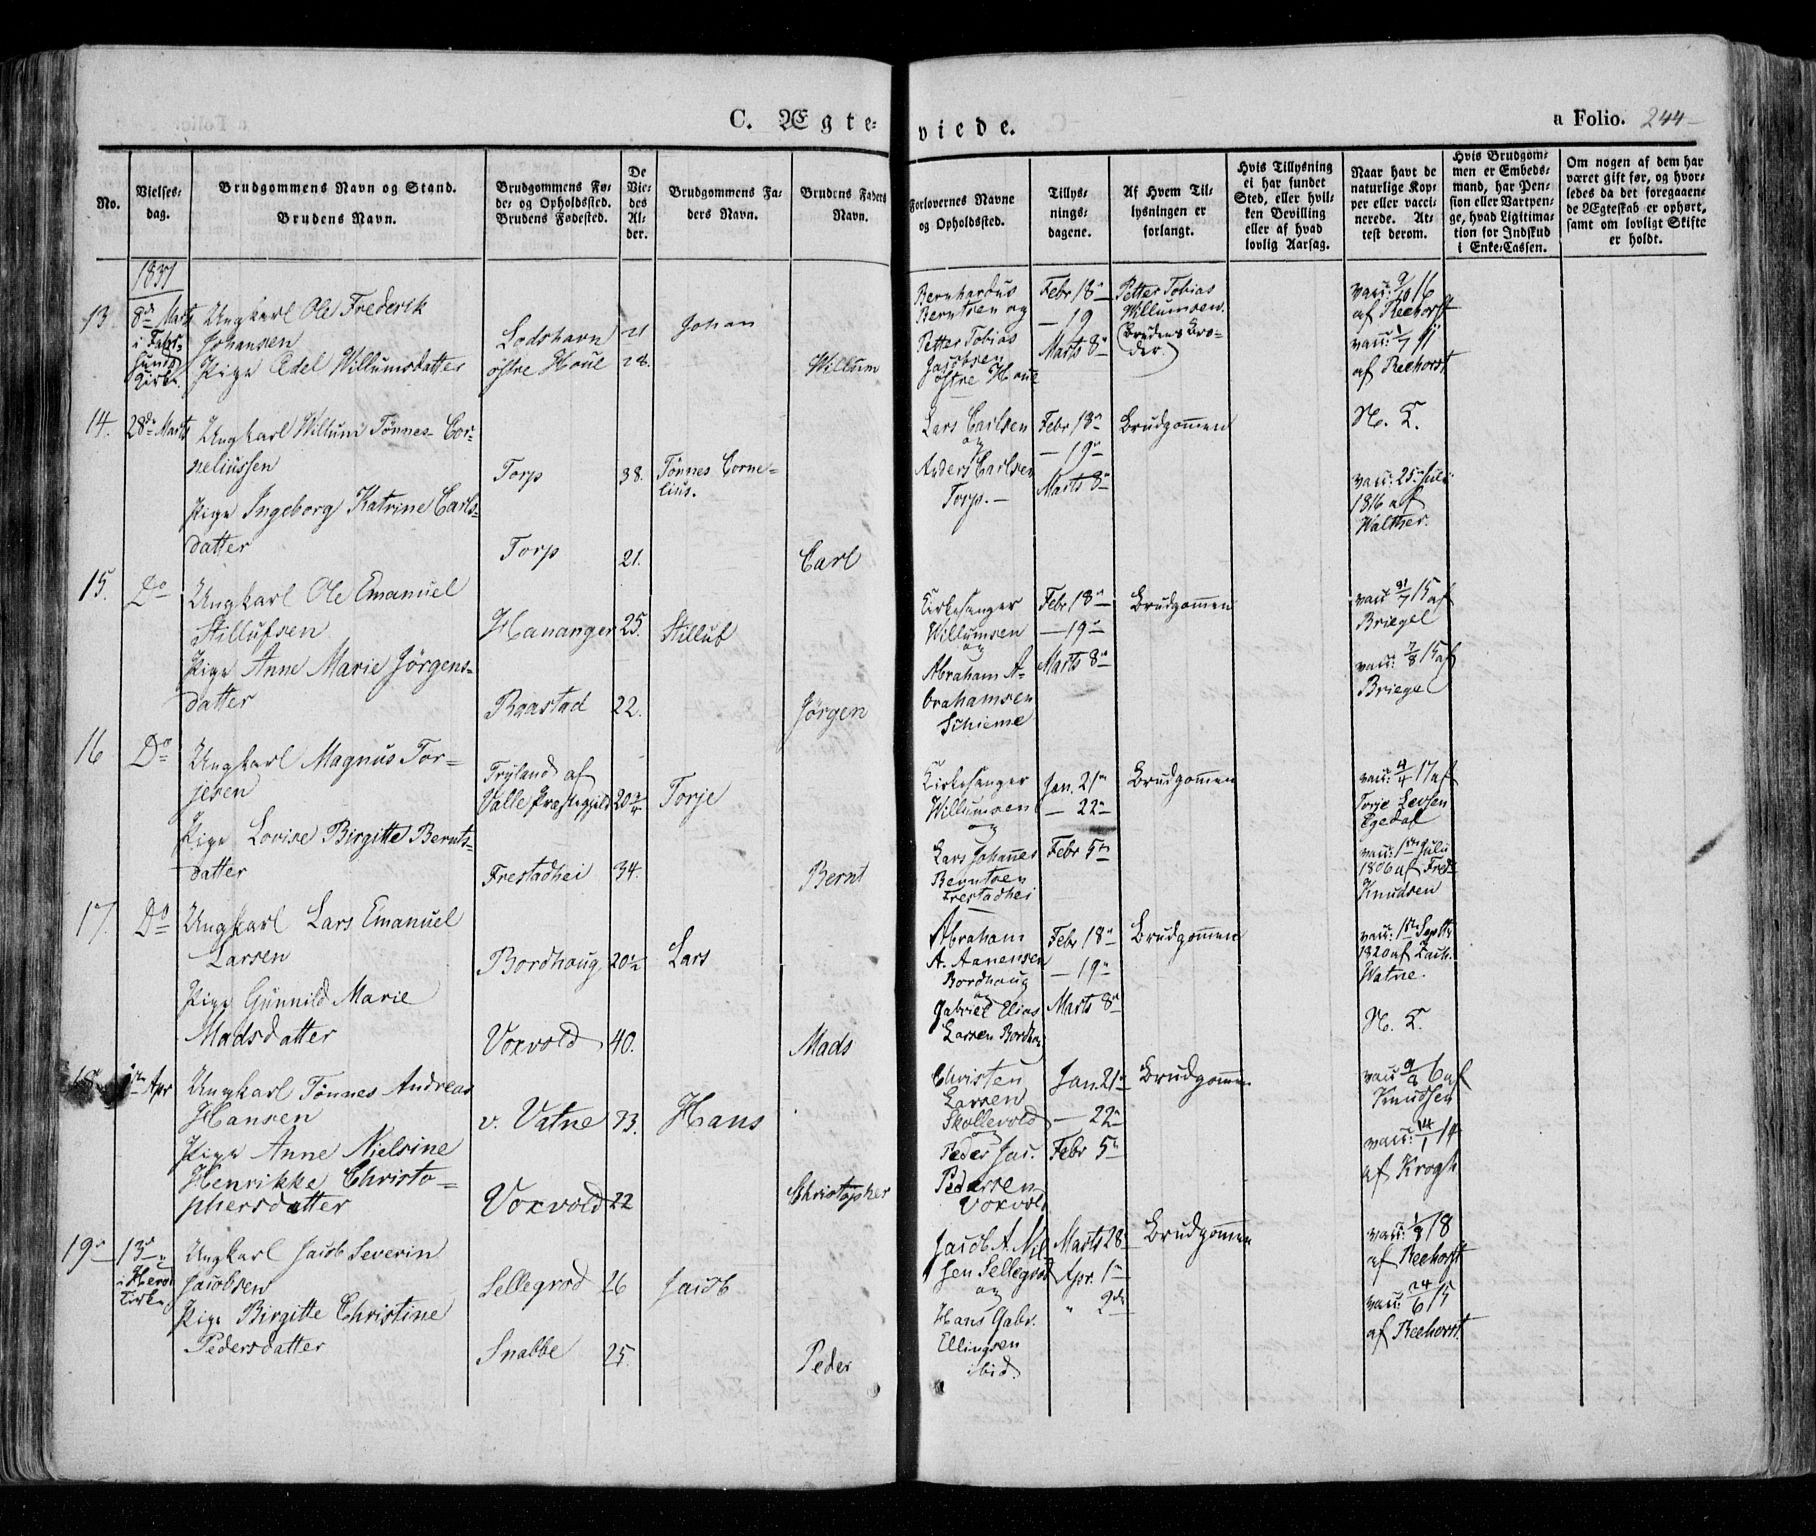 C. Ægte-
viede.
a Folio. 244
No.
Vielses-
dag.
Brudgommens Navn og Stand.
Brudens Navn.
Brudgommens Fø-
de- og Opholdssted.
Brudens Fødested.
De
Vie-
des
Al-
der.
Brudgommens Fa-
ders Navn.
Brudens Faders
Navn.
Forlovernes Navne
og Opholdssted.
Tillys-
nings-
dagene.
Af Hvem Til-
lysningen er
forlangt.
Hvis Tillysning
ei har fundet
Sted, eller hvil-
ken Bevilling
eller af hvad
lovlig Aarsag.
Naar havt de
naturlige Kop-
per eller vacci-
nerede. At-
test derom.
Hvis Brudgom-
men er Embeds-
mand, har Pen-
sion eller Vartpen-
ge, hvad Ligitima-
tion for Indskud
i Enke-Cassen.
Om nogen af dem har
været gift før, og hvor-
ledes da det foregaaen-
de Ægteskab er ophørt,
samt om lovligt Skifte
er holdt.
1837
13. 8de Marts
i Far-
sund
Kirke
Ungkarl Ole Frederik
Johansen
Pige Edel Willumsdatter
Lodshavn 21
østre Houe 28.
Johan
Willum
Bernhardus
Berntsen og
Petter Tobias
Jacobsen
østre Houe
Febr 18
— 19
Marts 8
Petter Tobias
Willumsen.
(Brudens Bro-
der.)
vacc: 9/10 16
af Reehorst
vacc: 1/7 11
af Reehorst
14. 28de Marts
Ungkarl Willum Tønnes Cor-
neliussen
Pige Ingeborg Katrine Carls-
datter
Torp 38.
Torp 21.
Tønnes Corne-
lius.
Carl
Lars Carlsen
og
Anders Carlsen
Torp. —
Febr 18
— 19
Marts 8
Brudgommen
N. K.
vacc: 25 Juli
1816 af
Walther.
15. Do
Ungkarl Ole Emanuel
Stillufsen
Pige Anne Marie Jörgens-
datter
Hananger 25.
Baastad 22.
Stilluf
Jørgen
Kirkesanger
Willumsen
og
Abraham A-
brahamsen
Schieme
Febr 18
— 19
Marts 8
Brudgommen
vacc 21/7 15 af
Briegel
vacc: 7/8 15 af
Briegel
16 Do
Ungkarl Magnus Tor-
jesen
Pige Lovise Birgitte Bernts-
datter
Tryland af
Valle Præstegjeld 20
Frestadhei 34.
Torje
Bernt
Kirkesanger
Willumsen
og
Lars Johannes
Berntsen
Frestadhei
Jan. 21
— 22
Febr 5
Brudgommen
vacc: 4/4 17 af
Torje
Egedal
vacc: 1 Julii
1806 af Fred:
Knudsen
17. Do
Ungkarl Lars Emanuel
Larsen
Pige Gunnild Marie
Madsdatter
Bordhoug 20½
Voxvold 40.
Lars
Mads
Abraham
A. Aanensen
Bordhoug
og
Gabriel Elias
Larsen Bordhoug
Febr 18
— 19
Marts 8
Brudgommen
vacc: 1 Septbr
1820 af Zach:
Watne.
N. K.
18 Apr
Ungkarl Tønnes Andreas
Hansen
Pige Anne Nielsine
Henrikke Christo-
phersdatter
v. Vatne 33.
Voxvold 22
Hans
Christopher
Christen
Larsen
Skollevold
og
Peder Jac.
Pedersen
Voxvold
Jan. 21
— 22
Febr 5
Brudgommen
vacc 9/9 6 af
Knudsen
vacc: 14/1 14
af Krogh
19 13
i Herø
Kirke
Ungkarl Jacob Severin
Jacobsen
Pige Birgitte Christine
Pedersdatter
Sellegrod 26
Snabbe 25.
Jacob
Peder
Jacob A. Niel-
sen Sellegrod
og
Hans Gabr.
Ellingsen
ibid.
Marts 28
Apr. 1
" 2de
Brudgommen
vacc: 1/9 18
af Reehorst
vacc: 24/6 15
af Reehorst.